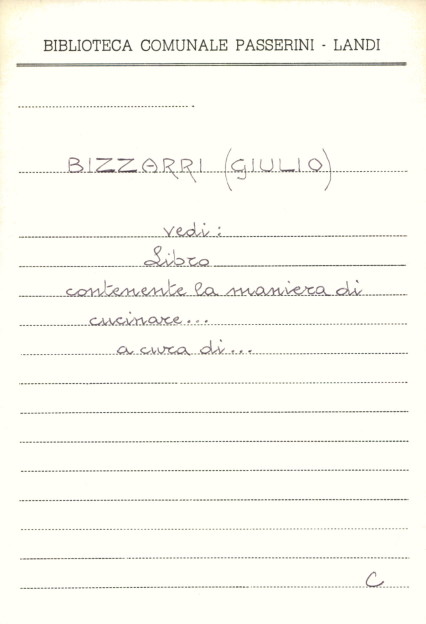 BIBLIOTECA COMUNALE PASSERINI - LANDI
BIZZARRI (GIULIO)
vedi:
Libro
contenente la maniera di
cucinare...
a cura di...
C